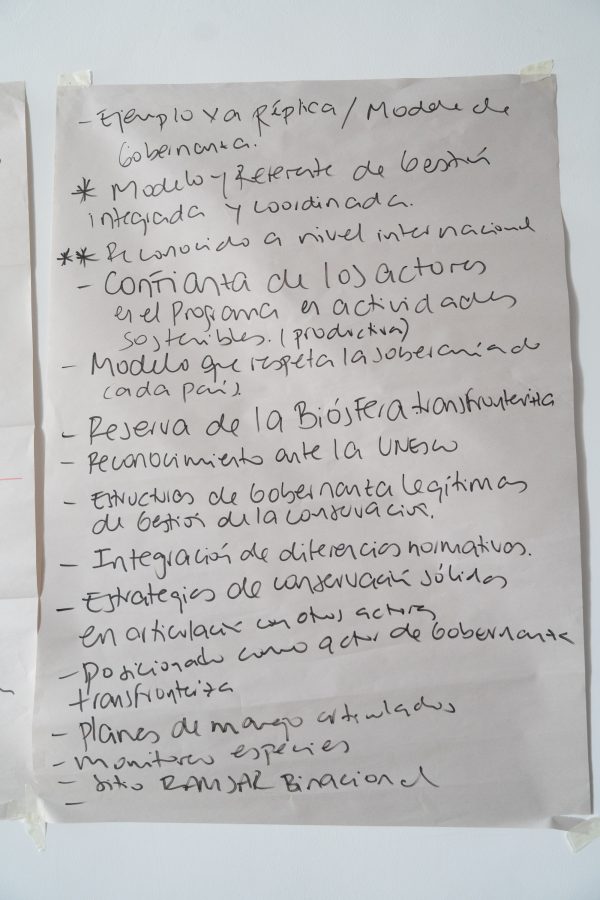 - Ejemplo xa Réplica / Modelo de
Gobernanza.
* Modelo y Referente de Gestión
integrada y coordinada.
** Reconocido a nivel internacional
- Confianza de los actores
en el Programa en actividades
sostenibles. (productiva)
- Modelo que respeta la soberanía de
cada país.
- Reserva de la Biósfera transfronteriza
- Reconocimiento ante la UNESCO
- Estructuras de Gobernanza legítimas
de Gestión de la conservación.
- Integración de diferencias normativas.
- Estrategias de conservación sólidas
en articulación con otros actores
- Posicionado como actor de Gobernanza
transfronteriza
- Planes de manejo articulados
- monitoreo espécies
- Sitio RAMSAR Binacional
-